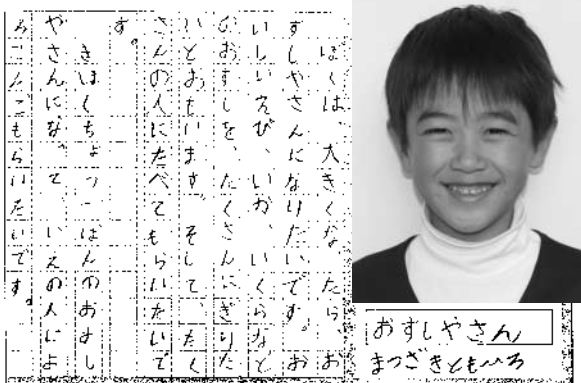 ぼくは、大きくなったら、お
すしやさんになりたいです。お
いしいえび、いか、いくらなど
のおすしを、たくさんにぎりた
いとおもいます。そして、たく
さんの人にたべてもらいたいで
す。
一ばんのおすし
やさんになって、いえの人によ
ろこんでもらいたいです。
おすしやさん
まつざきともひろ